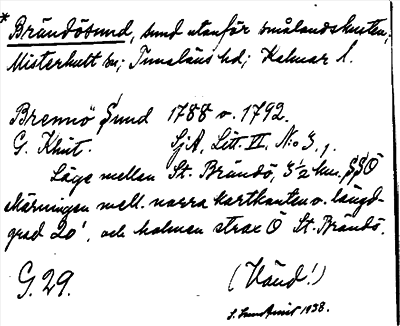 * Brändösund, sund utanför smålandskusten,
Misterhult sn; Tunaläns hd; Kalmar l.
Brennö Sund 1788 o. 1792.
G. Klint. SjA, Litt. II, N:o 3,1.
Läge mellan St. Brändö, 3½ km. SSÖ
skärningen mell. norra kartkanten o. längd-
grad 20', och holmen strax Ö St. Brändö.
G. 29. (Vänd!)
1938.